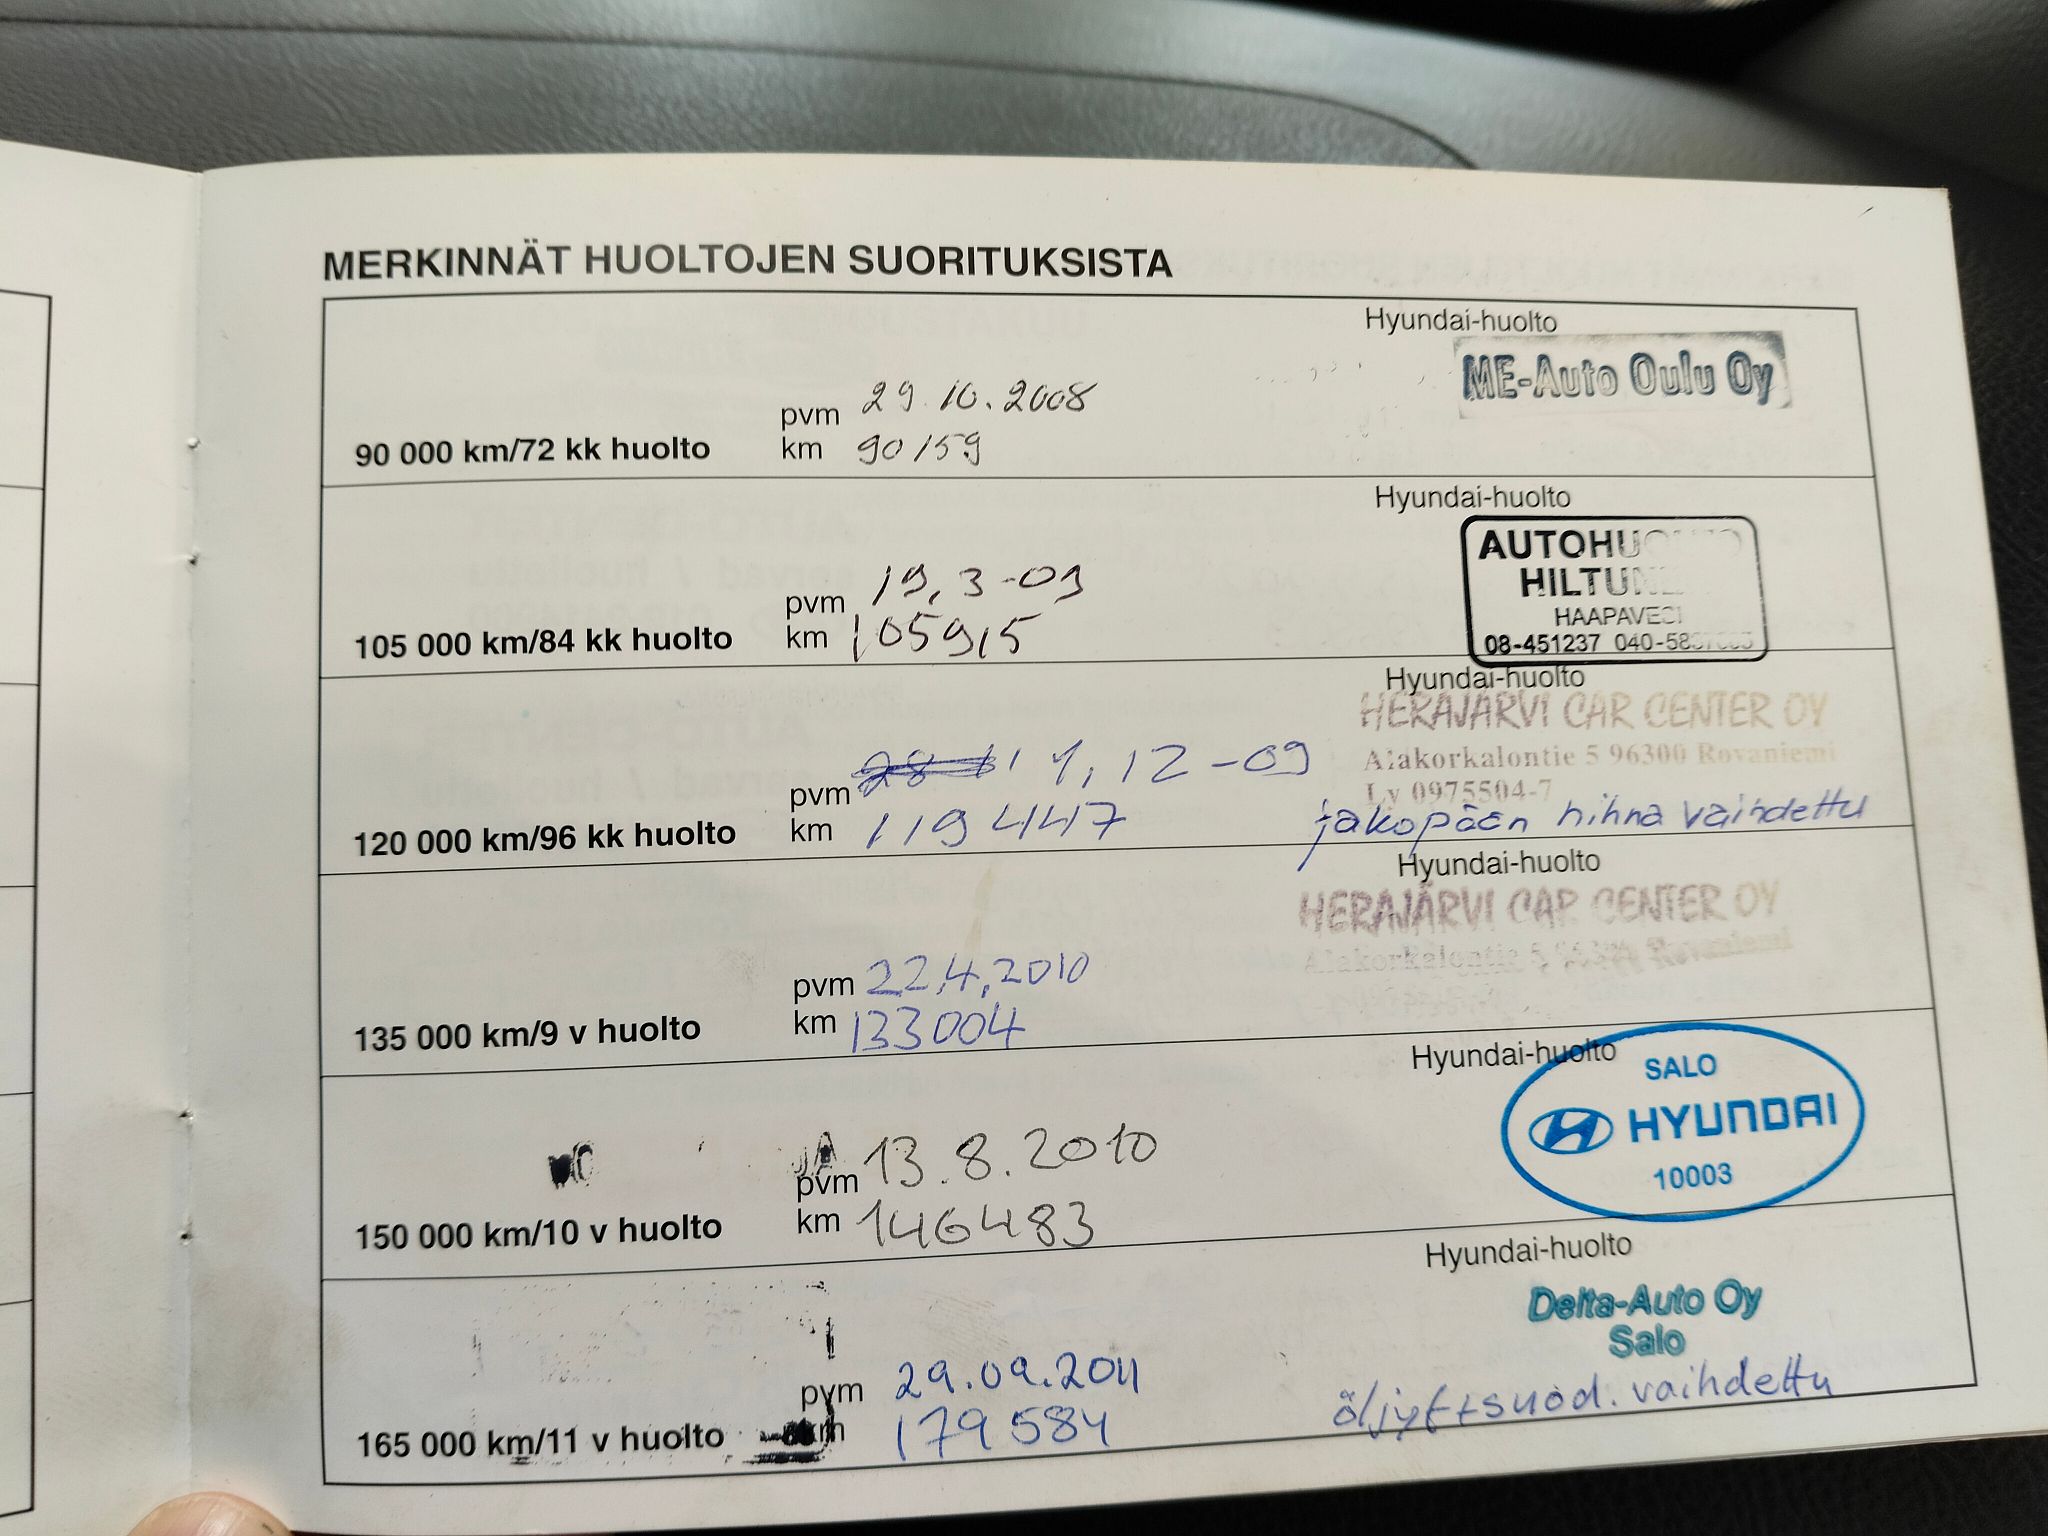 MERKINNÄT HUOLTOJEN SUORITUKSISTA
Hyundai-huolto
ME-Auto Oulu Oy
pvm 29.10.2008
90 000 km/72 kk huolto km 90159
Hyundai-huolto
AUTOHUOLTO
HILTUNEN
HAAPAVESI
08-451237 040-58
pvm 19,3-09
105 000 km/84 kk huolto km 105915
Hyundai-huolto
HERAJÄRVI CAR CENTER OY
Alakorkalontie 5 96300 Rovaniemi
Ly 0975504-7
pvm 1,12-09
120 000 km/96 kk huolto km 119447
jakopään hihna vaihdettu
Hyundai-huolto
HERAJÄRVI CAR CENTER OY
Alakorkalontie 5 96300 Rovaniemi
pvm 22,4,2010
135 000 km/9 v huolto km 133004
Hyundai-huolto
SALO
HYUNDAI
10003
pvm 13.8.2010
150 000 km/10 v huolto km 146483
Hyundai-huolto
Delta-Auto Oy
Salo
pvm 29.09.2011
165 000 km/11 v huolto km 179584
öljyt+suod. vaihdettu